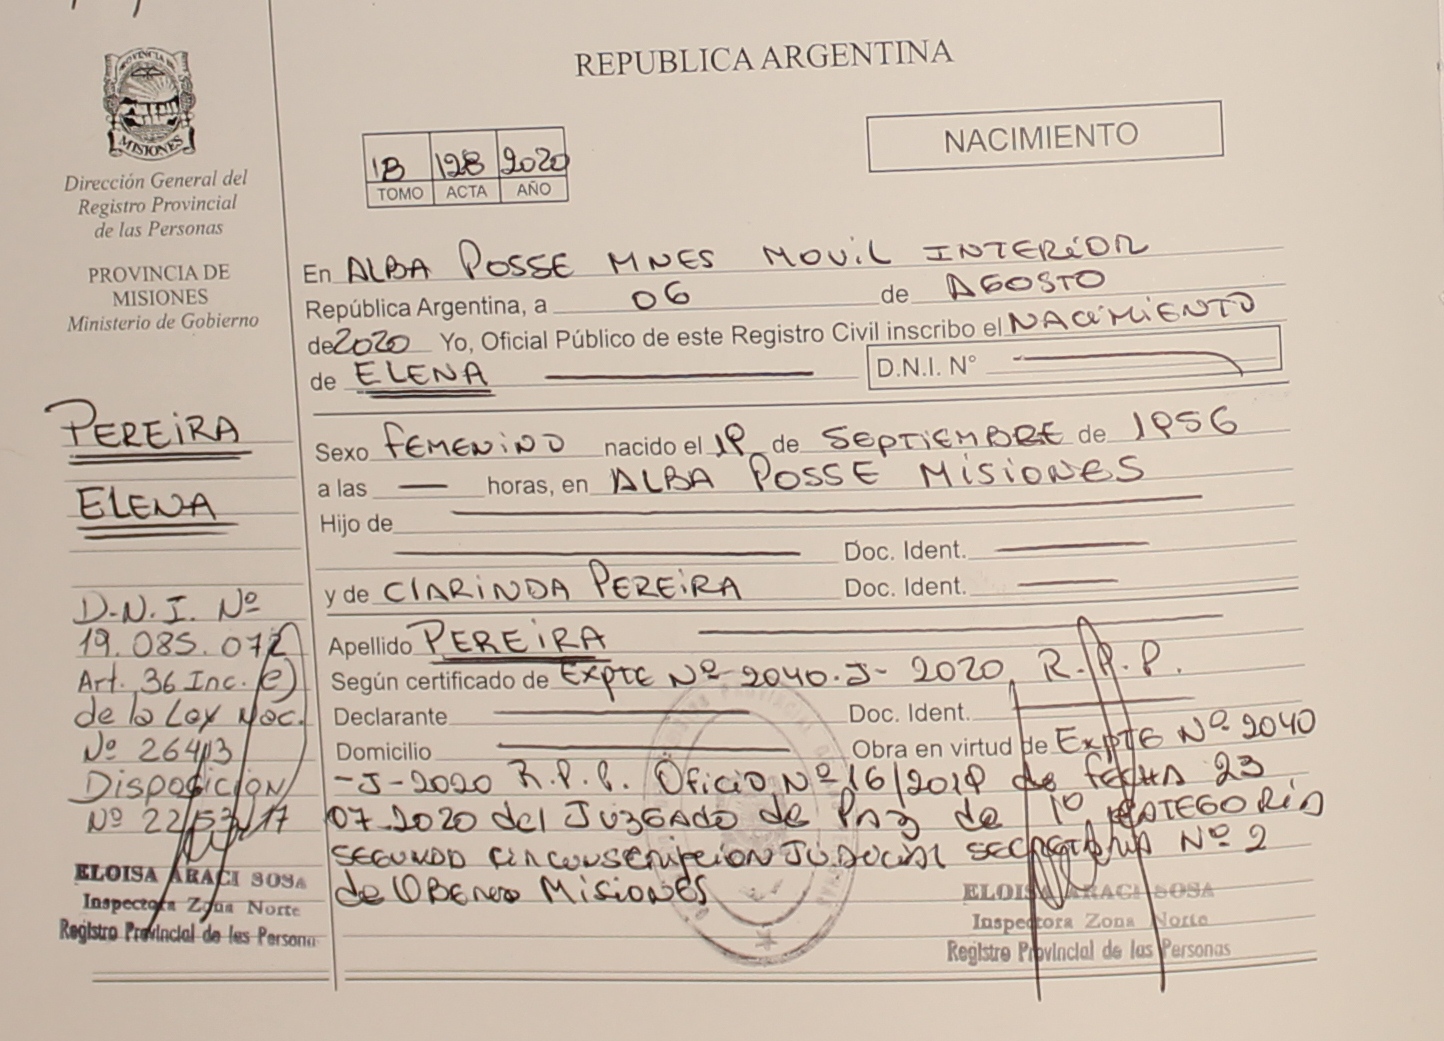 PROVINCIA DE
MISIONES
Dirección General del
Registro Provincial
de las Personas
PROVINCIA DE
MISIONES
Ministerio de Gobierno
PEREIRA
ELENA
D.N.I. Nº
19.085.072
Art. 36 Inc. e)
de la Ley Nac.
Nº 26413
Disposición
Nº 22/53/17
ELOISA ARACI SOSA
Inspectora Zona Norte
Registro Provincial de las Persona
REPUBLICA ARGENTINA
1B 128 2020
TOMO ACTA AÑO
NACIMIENTO
En ALBA POSSE MNES MOVIL INTERIOR
República Argentina, a 06 de AGOSTO
de 2020 Yo, Oficial Público de este Registro Civil inscribo el NACIMIENTO
de ELENA D.N.I. N°
Sexo FEMENINO nacido el 19 de SEPTIEMBRE de 1956
a las — horas, en ALBA POSSE MISIONES
Hijo de
Doc. Ident.
y de CLARINDA PEREIRA Doc. Ident.
Apellido PEREIRA
Según certificado de EXPTE Nº 2040.J- 2020 R.P.P.
Declarante Doc. Ident.
Domicilio Obra en virtud de EXPTE Nº 2040
-J-2020 R.P.P. OFICIO Nº 16/2019 de FECHA 23
07.2020 del JUZGADO de PAZ de 1º CATEGORIA
SEGUNDA CIRCUNSCRIPCION JUDICIAL SECRETARIA Nº 2
de OBERA MISIONES
ELOISA ARACI SOSA
Inspectora Zona Norte
Registro Provincial de las Personas